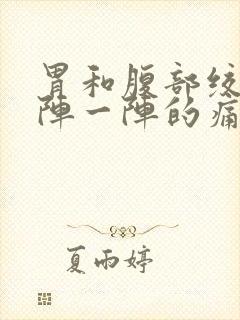 胃和腹部绞
陣一陣的痛
夏雨婷